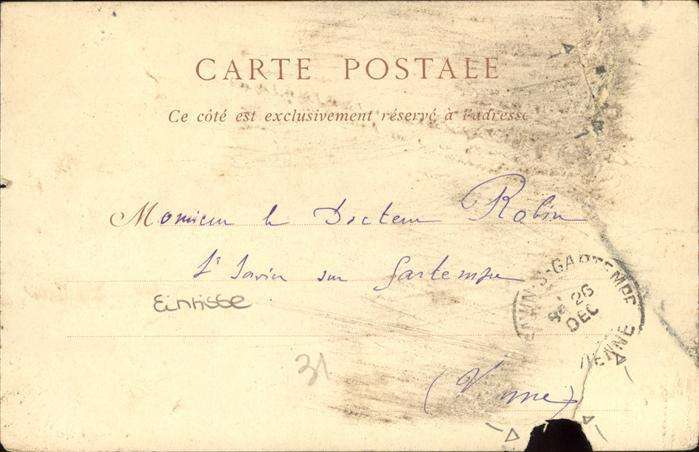 CARTE POSTALE
Ce côté est exclusivement réservé à l'adresse
Monsieur le Docteur Rabin
St Savin sur Gartempe
31
(Vienne)
ST-GARTEMPE
26
DEC
VIENNE